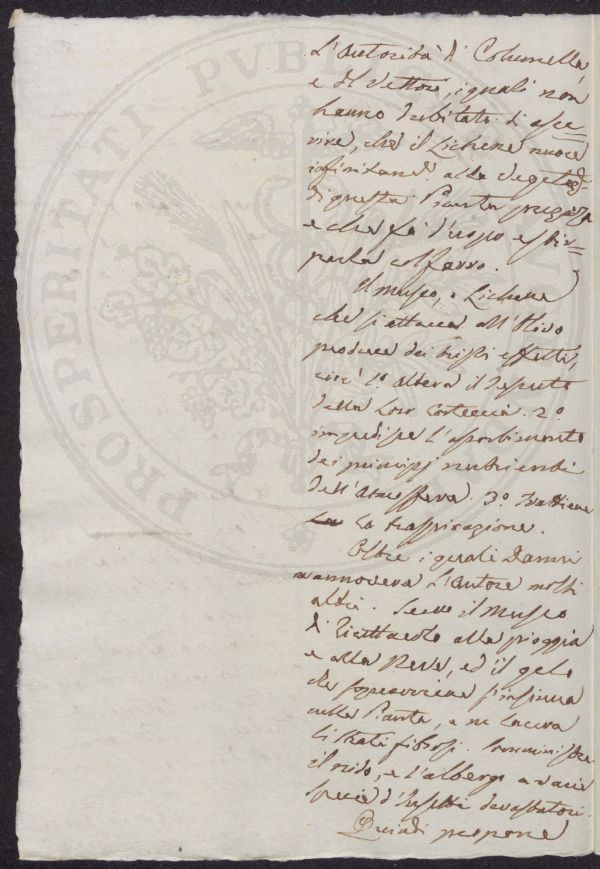 PROSPERITATI PVBLICAE
L'autorità di Columella
e del Vettori, i quali non
hanno dubitato di asse=
rire, che il Lichene nuoce
alla
di questa Pianta
e che fa d'uopo estir=
parla col ferro.
Il musco, o Lichene
che si attacca all'Olivo
produce dei tristi effetti,
cioè 1.° altera il tessuto
della loro corteccia. 2.°
impedisce l'assorbimento
dei principj nutrienti
dell'Atmosfera. 3.° trattiene
la traspirazione.
Oltre i quali danni
annovera l'autore molti
altri. Serve il Musco
di ricettacolo alla pioggia
e alla Neve, ed il gelo
che sopravviene s'insinua
nella Pianta, e ne lacera
li strati fibrosi. Somministra
il nido, e l'albergo a varie
specie d'Insetti devastatori.
Quindi propone